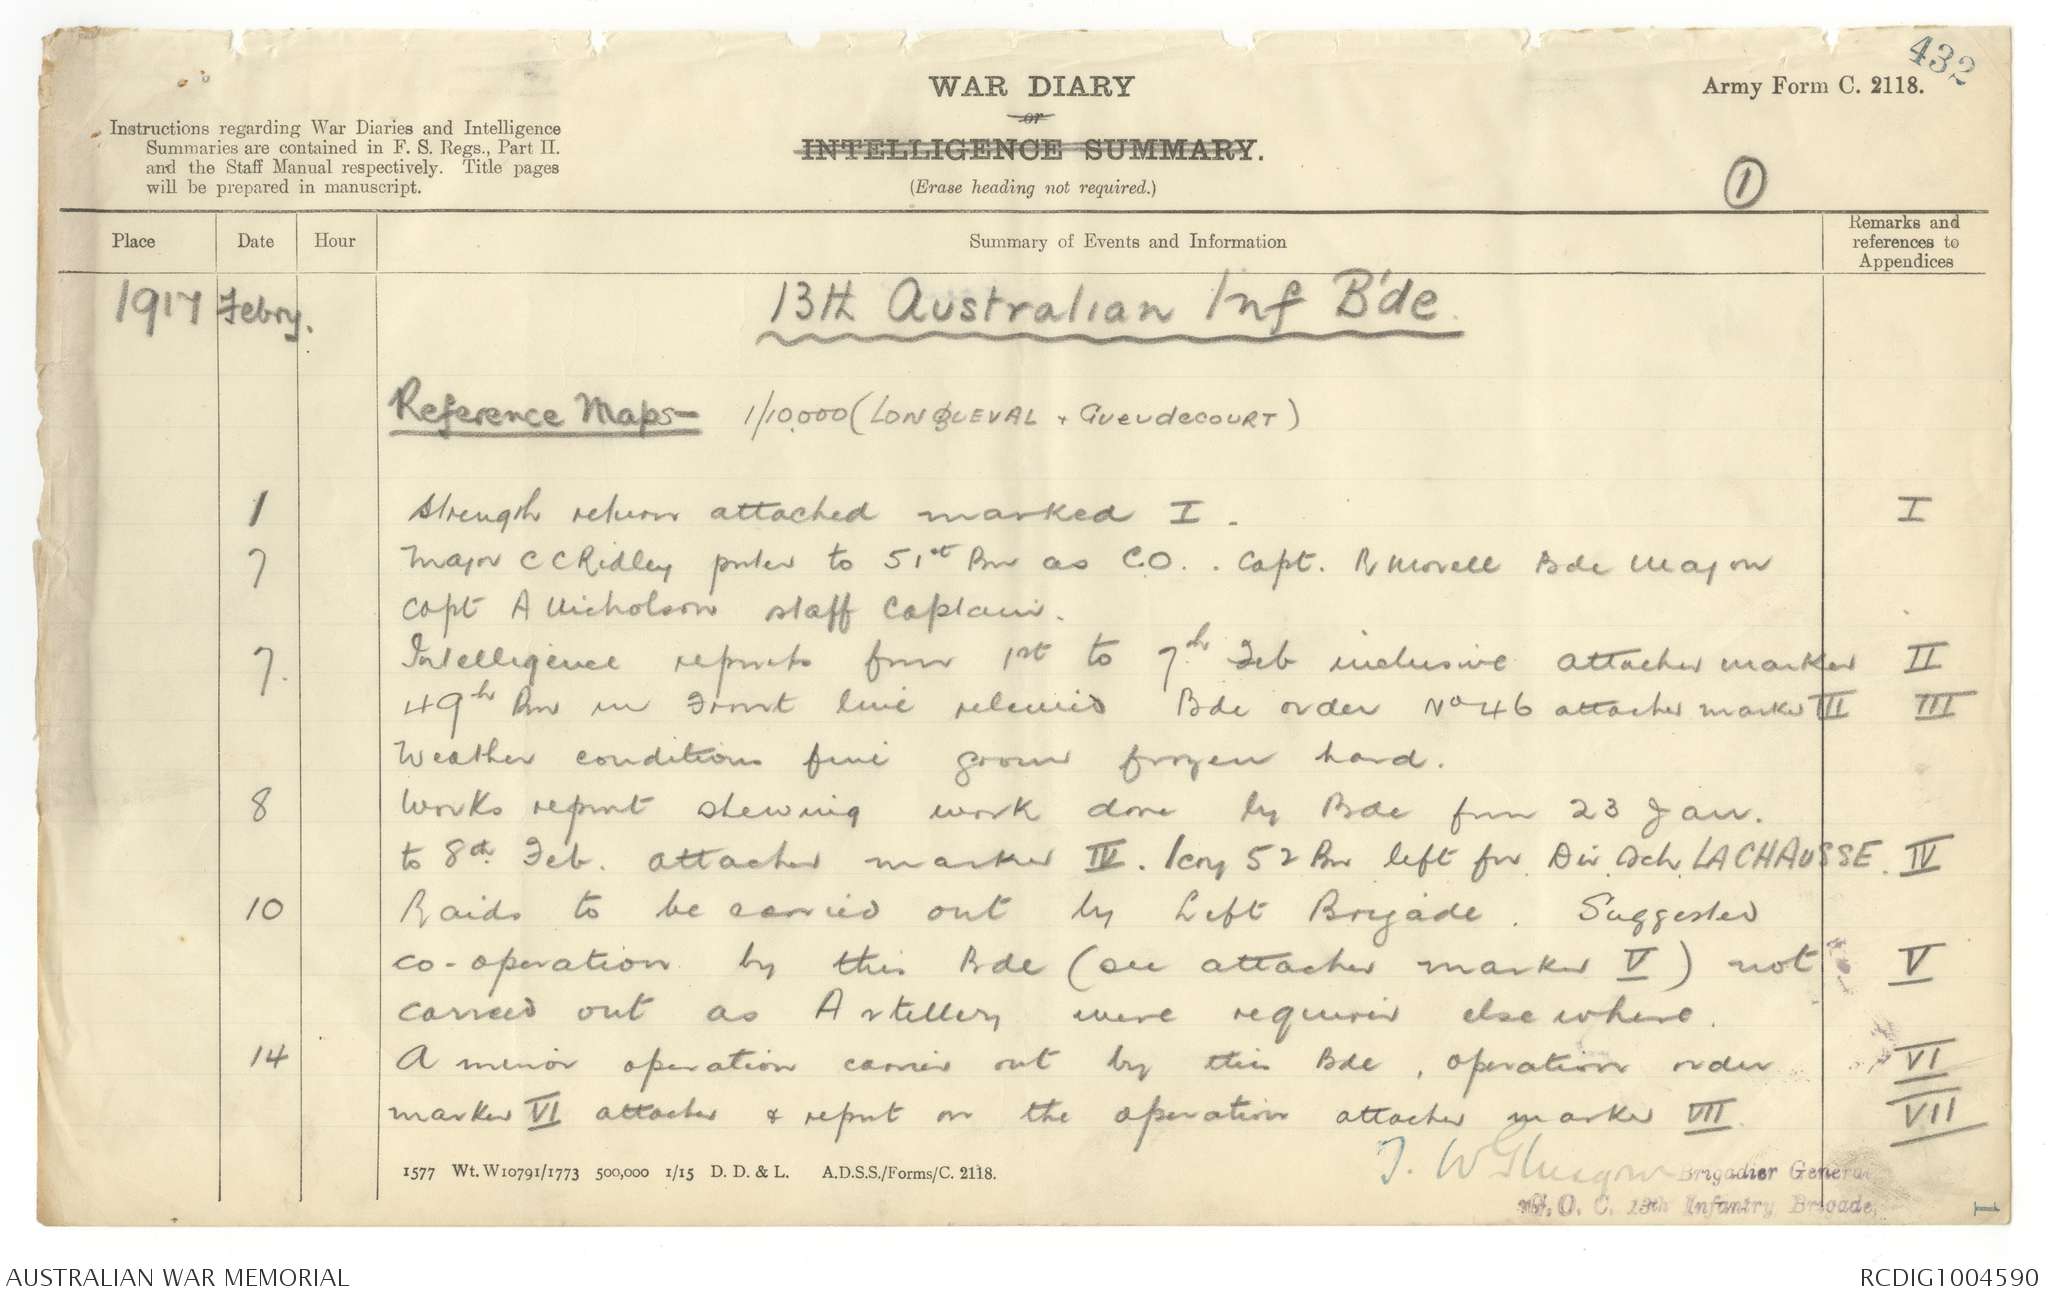 432
WAR DIARY
or
INTELLIGENCE SUMMARY.
(Erase heading not required.)
Army Form C. 2118.
Instructions regarding War Diaries and Intelligence
Summaries are contained in F. S. Regs., Part II.
and the Staff Manual respectively. Title pages
will be prepared in manuscript.
1
Place Date Hour Summary of Events and Information Remarks and references to Appendices
1917 Febry. 13th Australian Inf B'de.
Reference Maps - 1/10.000 (LONGUEVAL + GUEUDECOURT)
1 Strength return attached marked I. I
7 Major C C Ridley posted to 51st Bn as C.O.. Capt. R Morell Bde Major
Capt A Nicholson staff Captain.
7. Intelligence reports from 1st to 7th Feb inclusive attached marked II II
49th Bn in Front line relieved Bde order No 46 attached marked III III
Weather conditions fine ground frozen hard.
8 Works report shewing work done by Bde from 23 Jan.
to 8th Feb. attached marked IV. 1 coy 52 Bn left for Div. Sch. LACHAUSSE. IV
10 Raids to be carried out by Left Brigade. Suggested
co-operation by this Bde (see attached marked V) not V
carried out as Artillery were required elsewhere.
14 A minor operation carried out by this Bde, operation order VI
marked VI attached & report on the operation attached marked VII VII
T. W Glasgow Brigadier General
G. O. C. 13th Infantry Brigade.
1577 Wt. W10791/1773 500,000 1/15 D. D. & L. A.D.S.S./Forms/C. 2118.
1
AUSTRALIAN WAR MEMORIAL RCDIG1004590